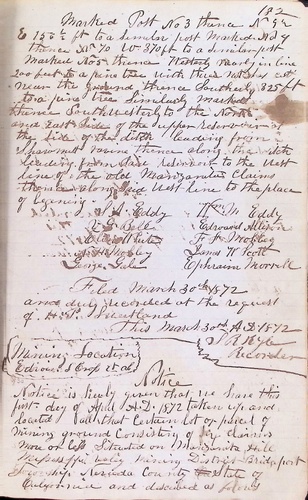 182
Marked Post No 3 thence N 5½
E 150½ ft to a similar post Marked No 4
thence N 70 W 370 ft to a similar post
Marked No 5 thence Westerly in line
200 feet to a pine tree with three notches cut
Near the Ground thence Southerly 825 ft
to a pine tree Similarly marked
thence Southwesterly to the North
and East Sides of the upper reservoir
the line of ditch leading from
mine thence along the ditch
leading from said reservoir to the West
line of the old Manzanita Claims
thence along said West line to the place
of begining
S. A. Eddy Wm M Eddy
Bell Edward Allison
White F. F. Mobley
Mobley James W Scott
George Gale Ephraim Morrell
Filed March 30th 1872
and duly recorded at the request
of H. P. Sweetland
This March 30th A.D. 1872
Recorder
Mining Location
Notice
Notice is hereby given that we have this
first day of April A.D. 1872 taken up and
located all that Certain lot or parcel of
mining ground Consisting of claims
more or less Situated on Manzanita Hill
Mining District Bridgeport
Township Nevada County State of
California and discribed as follows